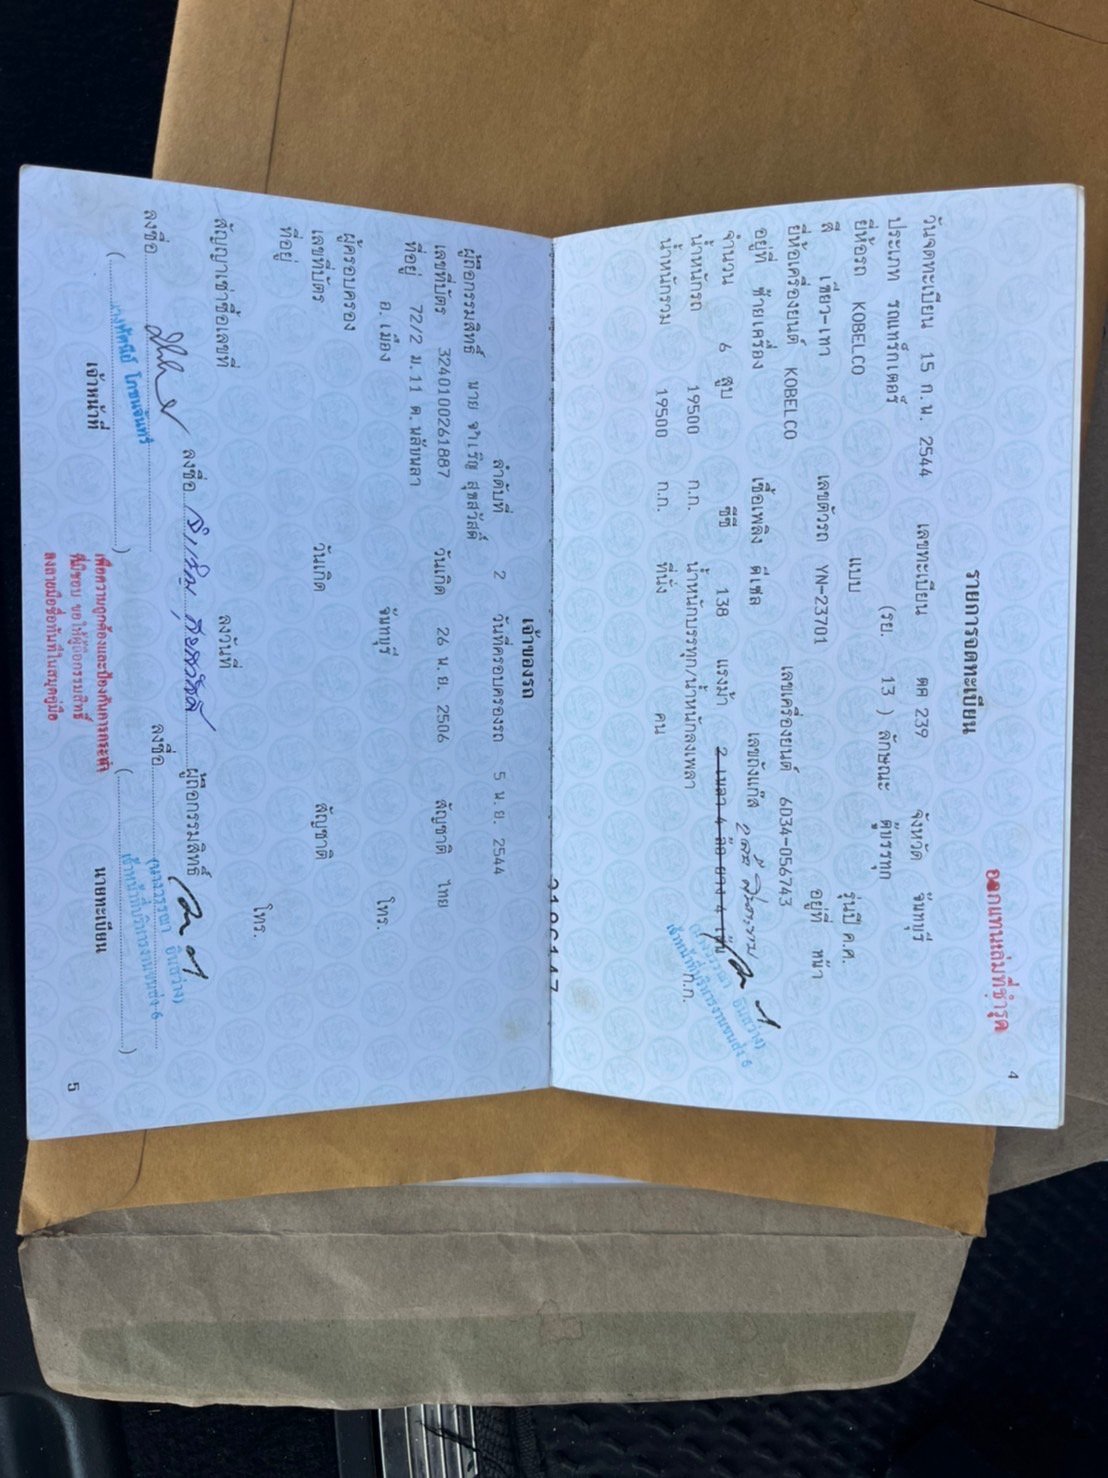 ออกแทนเล่มที่ชำรุด
4
รายการจดทะเบียน
วันจดทะเบียน 15 ก.พ. 2544 เลขทะเบียน ตค 239 จังหวัด จันทบุรี
ประเภท รถแทร็กเตอร์ (รย. 13 ) ลักษณะ ตู้บรรทุก
ยี่ห้อรถ KOBELCO แบบ รุ่นปี ค.ศ.
สี เขียว-เทา เลขตัวรถ YN-23701 อยู่ที่ หน้า
ยี่ห้อเครื่องยนต์ KOBELCO เลขเครื่องยนต์ 6034-056743
อยู่ที่ ซ้ายเครื่อง เชื้อเพลิง ดีเซล เลขถังแก๊ส
จำนวน 6 สูบ ซีซี 138 แรงม้า 2 เพลา 4 ล้อ ยาง 4 เส้น
น้ำหนักรถ 19500 ก.ก. น้ำหนักบรรทุก/น้ำหนักลงเพลา ก.ก.
น้ำหนักรวม 19500 ก.ก. ที่นั่ง คน
เจ้าหน้าที่บริหารงานขนส่ง 6
เจ้าของรถ
ลำดับที่ 2 วันที่ครอบครองรถ 5 พ.ย. 2544
ผู้ถือกรรมสิทธิ์ นาย จำเริญ สุขสวัสดิ์
เลขที่บัตร 3240100261887 วันเกิด 26 พ.ย. 2506 สัญชาติ ไทย
ที่อยู่ 72/2 ม.11 ต.พลับพลา
อ.เมือง จันทบุรี โทร.
ผู้ครอบครอง
เลขที่บัตร วันเกิด สัญชาติ
ที่อยู่
โทร.
สัญญาเช่าซื้อเลขที่ ลงวันที่
ลงชื่อ ผู้ถือกรรมสิทธิ์
ลงชื่อ ลงชื่อ
เจ้าหน้าที่บริหารงานขนส่ง 6
( ) ( )
เจ้าหน้าที่ นายทะเบียน
เพื่อความถูกต้องและป้องกันการกระทำ
ที่มิชอบ ขอให้ผู้ถือกรรมสิทธิ์
ลงลายมือชื่อทันทีในสมุดคู่มือ
5